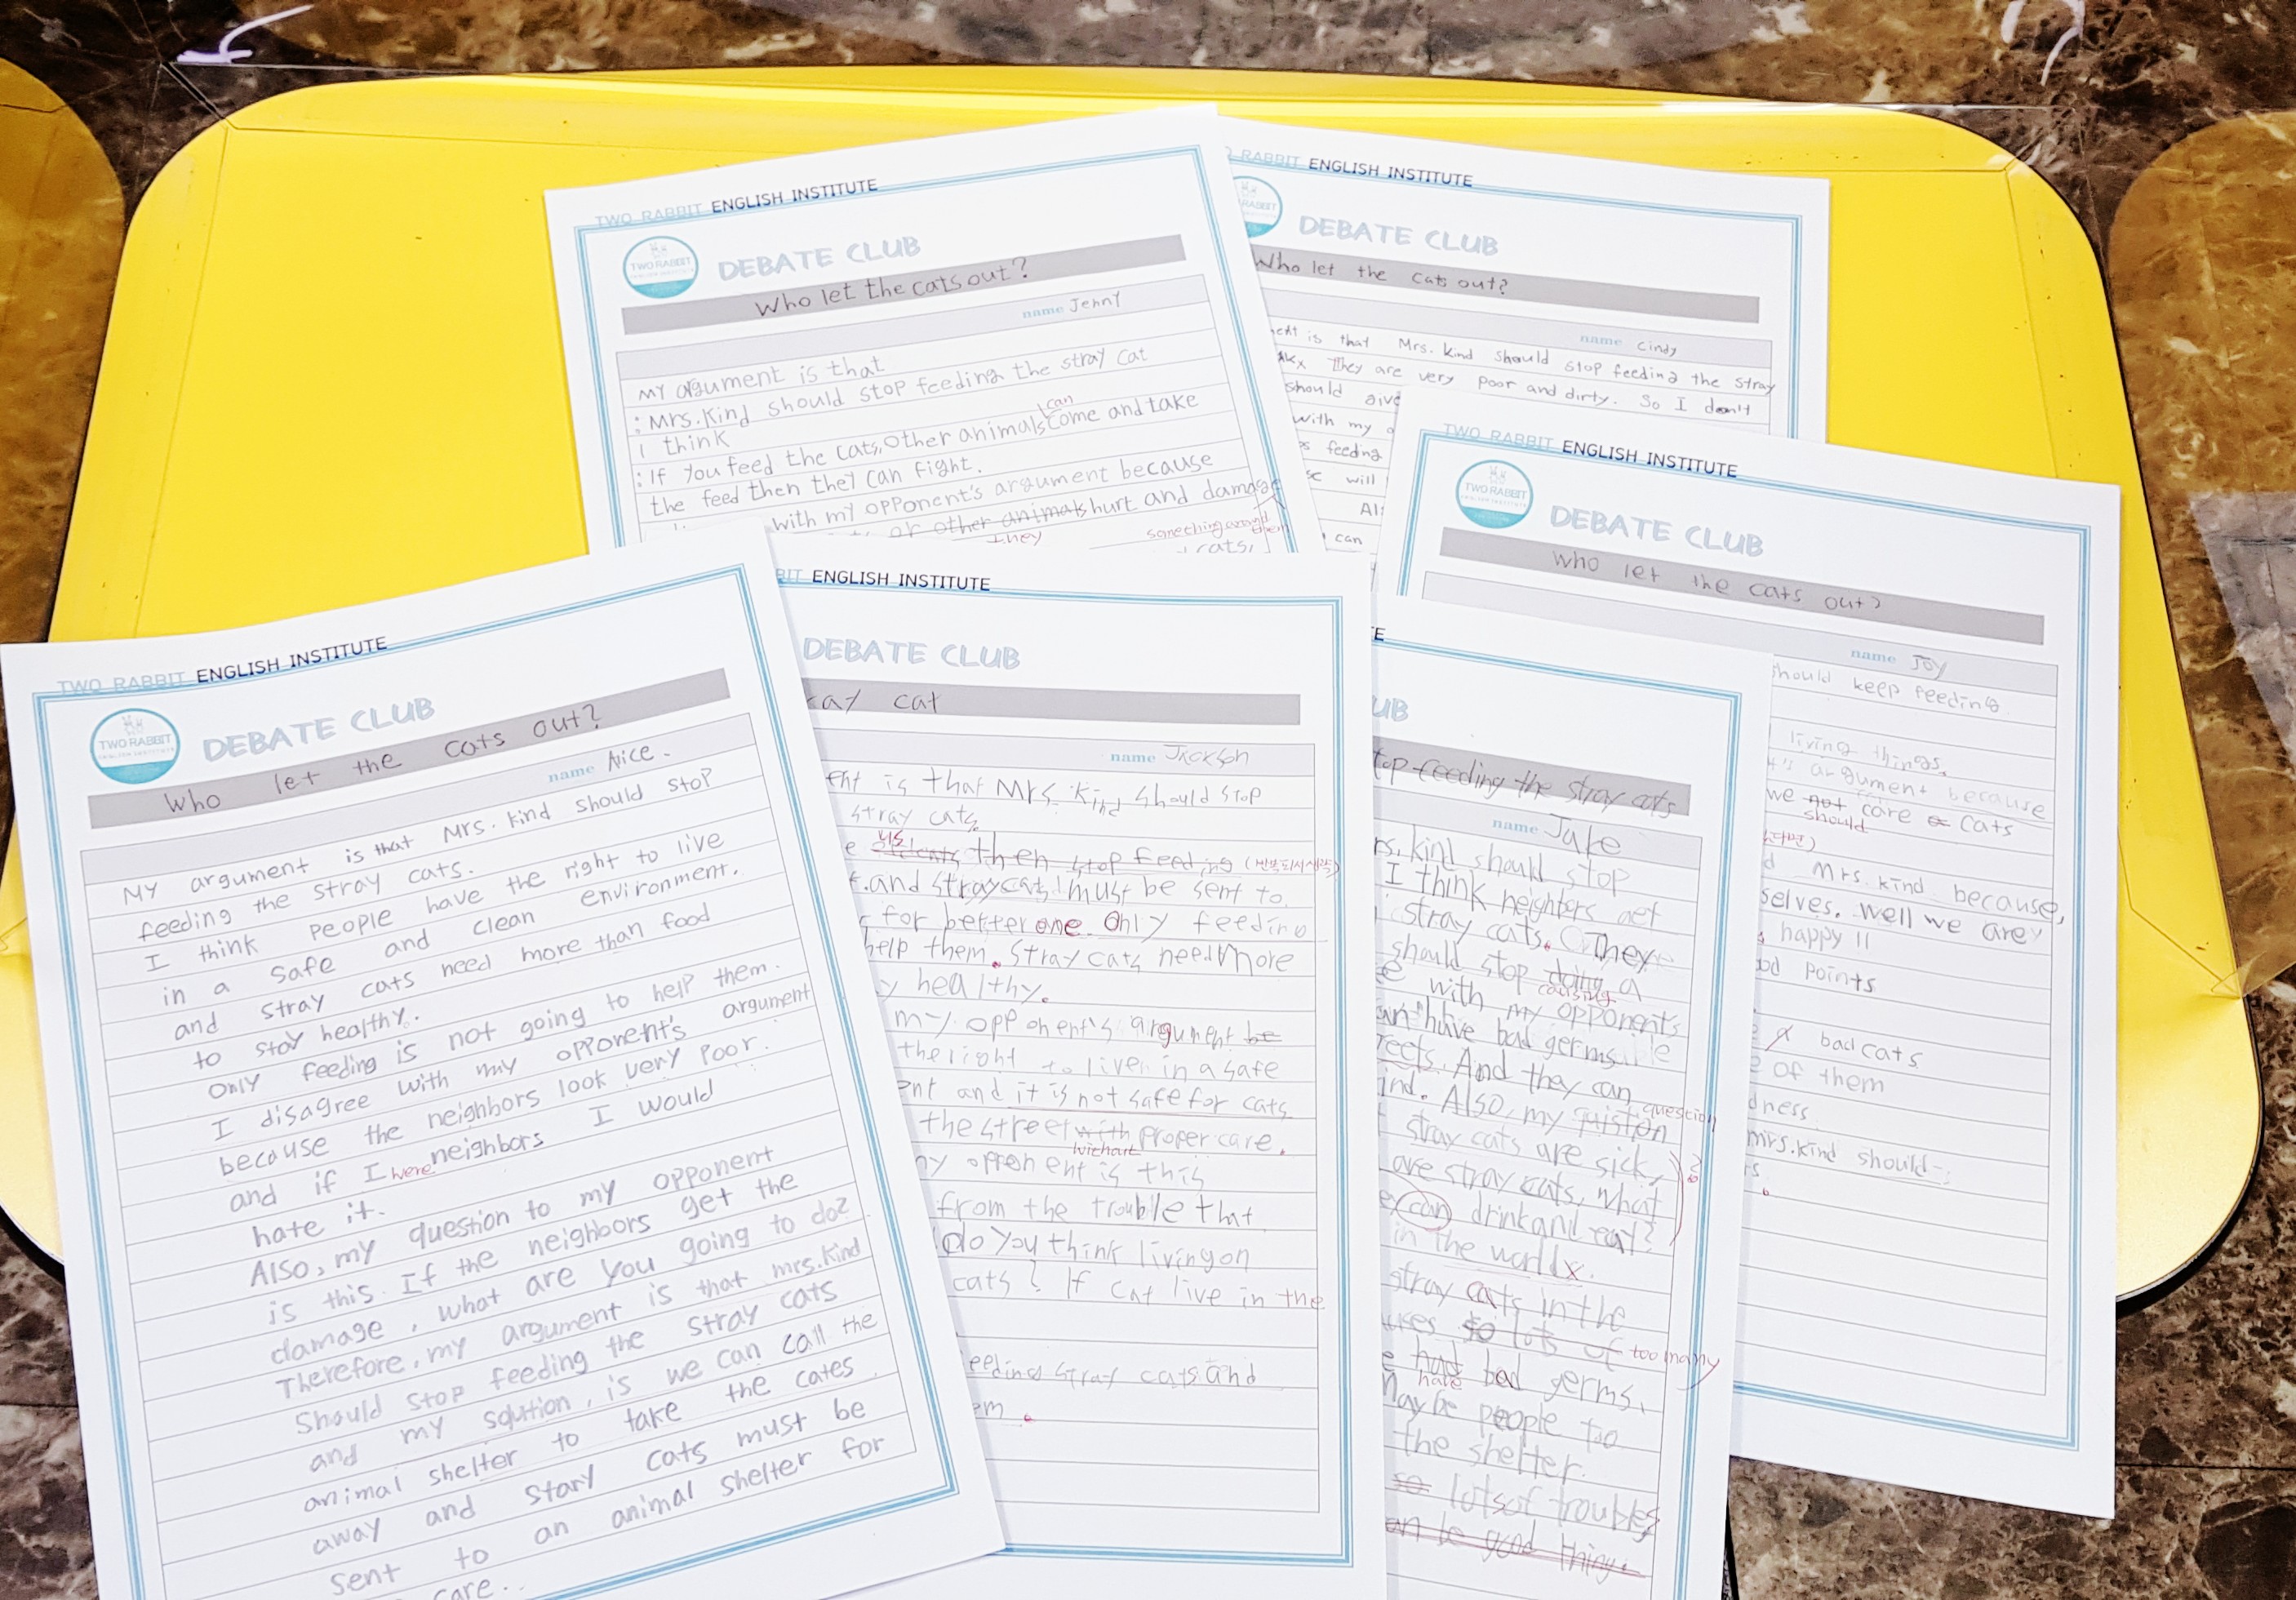 TWO RABBIT ENGLISH INSTITUTE
TWO RABBIT
ENGLISH INSTITUTE
DEBATE CLUB
Who let the cats out?
name Jenny
My argument is that
: Mrs. Kind should stop feeding the stray cat
I think
: If you feed the cats, other animals can come and take
the feed then they can fight.
with my opponent's argument because
or other animals hurt and damage
they something around them
rats,
RABBIT ENGLISH INSTITUTE
RABBIT
DEBATE CLUB
Who let the cats out?
name Cindy
is that Mrs. kind should stop feeding the stray
They are very poor and dirty. So I don't
should give
with my
feeding
will
can
TWO RABBIT ENGLISH INSTITUTE
TWO RABBIT
ENGLISH INSTITUTE
DEBATE CLUB
Who let the cats out?
name Joy
should keep feeding
living things.
argument because
we not care cats
should
Mrs. kind because,
selves. Well we are
happy !!
points
bad cats
of them
mrs. kind should
TWO RABBIT ENGLISH INSTITUTE
TWO RABBIT
ENGLISH INSTITUTE
DEBATE CLUB
Who let the cats out?
name Alice.
My argument is that Mrs. kind should stop
feeding the stray cats.
I think people have the right to live
in a safe and clean environment.
and stray cats need more than food
to stay healthy.
only feeding is not going to help them.
I disagree with my opponent's argument
because the neighbors look very poor.
and if I were neighbors I would
hate it.
Also, my question to my opponent
is this. If the neighbors get the
damage, what are you going to do?
Therefore, my argument is that mrs. kind
should stop feeding the stray cats
and my solution, is we can call the
animal shelter to take the cates
away and stary cats must be
sent to an animal shelter for
care..
ENGLISH INSTITUTE
DEBATE CLUB
cat
name Jackson
is that Mrs. Kind should stop
stray cats.
us then stop feeding (반복되서 생략)
and stray cats must be sent to
for better one. Only feeding
help them. Stray cats need more
healthy.
my opponent's argument be
the right to live in a safe
and it is not safe for cats
the street with proper care.
without
opponent is this
from the trouble that
do you think living on
cats? If cat live in the
stray cats and
stop feeding the stray cats
name Jake
kind should stop
I think neighbors get
stray cats. They
should stop doing a
causing
with my opponents
have bad germs
And they can
Also, my quiston question
stray cats are sick,
are stray cats, what
can drink and eat?
in the world x.
stray cats in the
so lots of too many
had bad germs.
have
Maybe people too
the shelter.
so lots of troubles
be good thing.